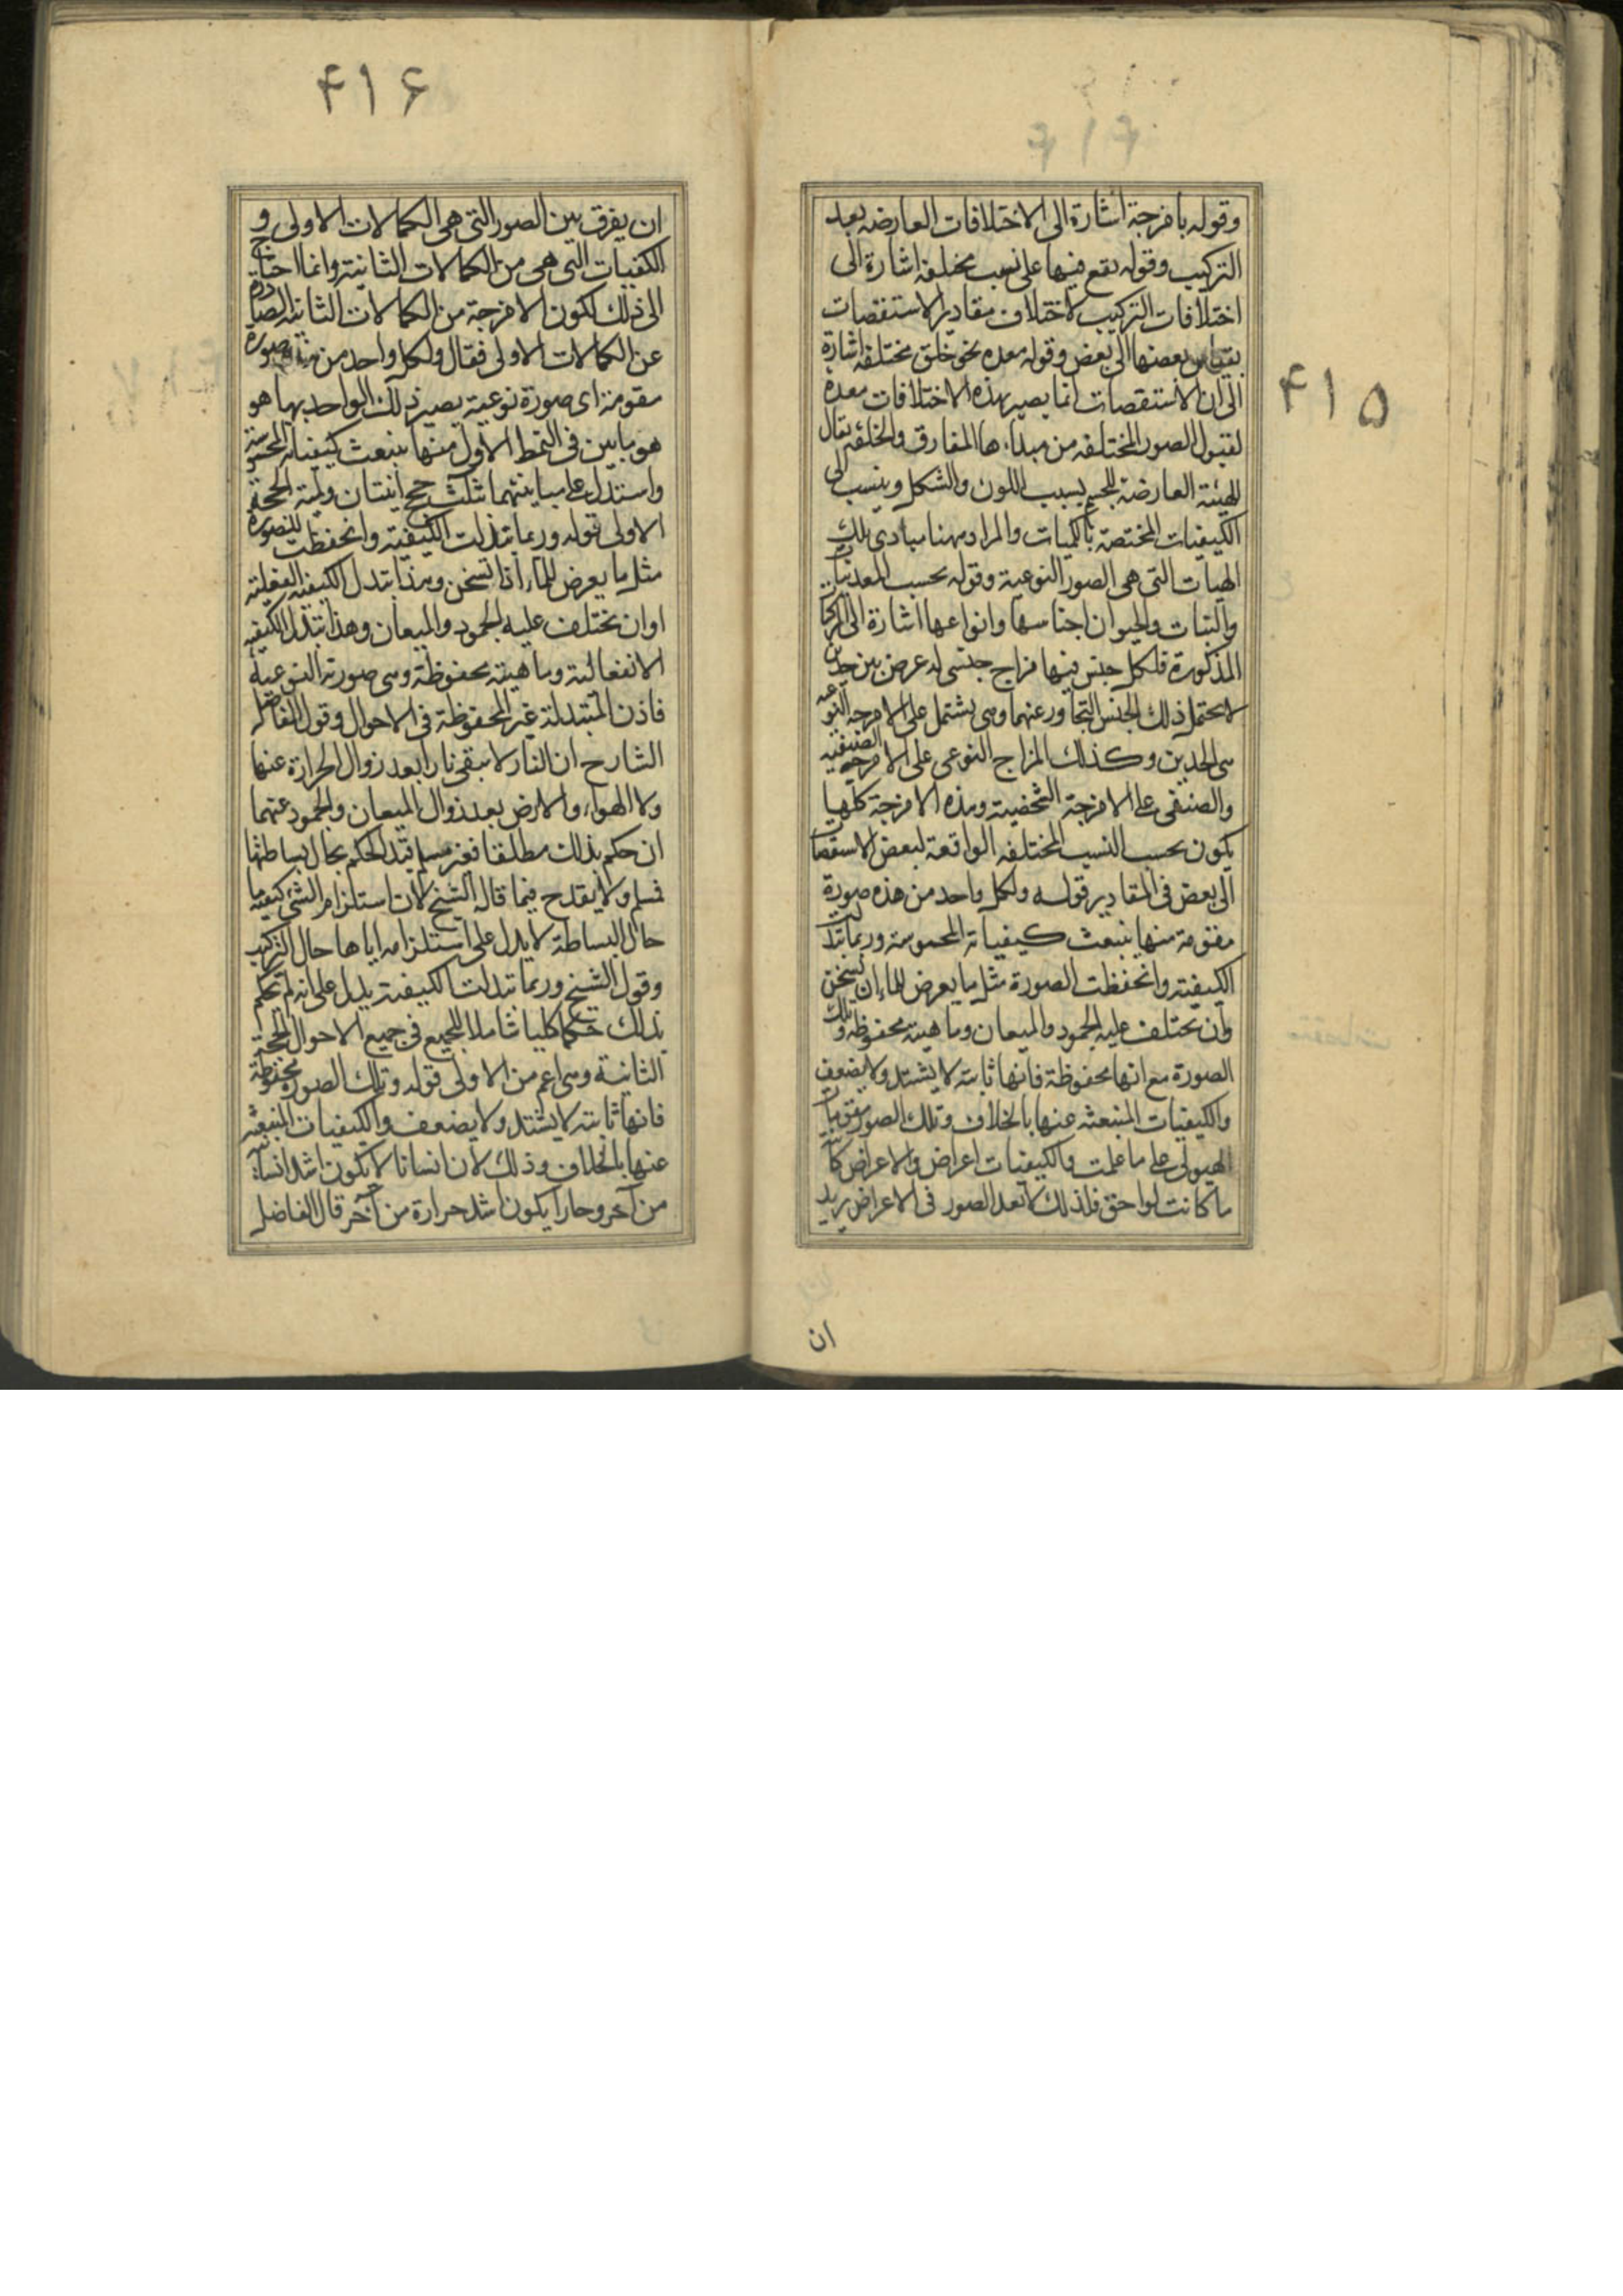 ۴۱۵
وقوله بامزجة اشارة الى الاختلافات العارضه بعد
التركيب وقوله يقع فيها على نسب مختلفة اشارة الى
اختلافات التركيب لاختلاف مقادير الاستقصات
بقياس بعضها الى بعض وقوله معده نحو خلق مختلفه اشارة
الى ان الاستقصات انما يصير بهذه الاختلافات معدة
لقبول الصور المختلفه من مبداءها المفارق والخلقه يقال
للهيئة العارضة للجسم بسبب اللون والشكل وينسب الى
الكيفيات المختصة بالكميات والمراد ههنا مبادى تلك
الهيات التى هى الصور النوعية وقوله بحسب المعدنيات
والنبات والحيوان اجناسها وانواعها اشارة الى المركبات
المذكورة فلكل جنس منها مزاج جنسى له عرض بين حدين
لا يحتمل ذلك الجنس التجاوز عنهما وهى يشتمل على الامزجه النوعيه
بين الحدين وكذلك المزاج النوعى على الامزجه الصنفيه
والصنفى على الامزجة الشخصية وهذه الامزجة كلها
يكون بحسب النسب المختلفه الواقعة لبعض الاستقصات
الى بعض فى المقادير قوله ولكل واحد من هذه صورة
مقومة منها ينبعث كيفياته المحسوسة وربما تبدلت
الكيفية وانحفظت الصورة مثل ما يعرض للماء ان يسخن
وان يختلف عليه الجمود والميعان وماهيته محفوظه وتلك
الصورة مع انها محفوظة فانها ثابته لا يشتد ولا يضعف
والكيفيات المنبعثه عنها بالخلاف وتلك الصور مقومات
الهيولى على ما علمت والكيفيات اعراض والاعراض كائنة
ما كانت لواحق فلذلك لا تعد الصور فى الاعراض يريد
ان
۴۱۶
ان يفرق بين الصور التى هى الكمالات الاولى و
الكفيات التى هى من الكمالات الثانية وانما احتاج
الى ذلك لكون الامزجة من الكمالات الثانيه الصادرة
عن الكمالات الاولى فقال ولكل واحد من هذه صورة
مقومة اى صورة نوعية يصير ذلك الواحد بها هو
هو ما بين فى النمط الاول منها ينبعث كيفياته المحسوسة
واستدل على مباينتهما بثلث حجج انيتان ولمية الحجة
الاولى قوله وربما تبدلت الكيفية وانحفظت الصورة
مثل ما يعرض للماء اذا تسخن وهذا تبدل الكيفيه الفعلية
او ان يختلف عليه الجمود والميعان وهذا تبدل الكيفيه
الانفعالية وماهيته محفوظة وهى صورته النوعية
فاذن المتبدلة غير المحفوظة فى الاحوال وقول الفاضل
الشارح ان النار لا تبقى نارا بعد زوال الحرارة عنها
ولا الهواء والارض بعد زوال الميعان والجمود عنهما
ان حكم بذلك مطلقا فغير مسلم وان قيد الحكم بحال بساطتها
فمسلم ولا يقدح فيما قاله الشيخ لان استلزام الشئ كيفيه ما
حال البساطة لا يدل على استلزامه اياها حال التركيب
وقول الشيخ وربما تبدلت الكيفية يدل على انه لم يحكم
بذلك حكما كليا شاملا للجميع فى جميع الاحوال الحجة
الثانية وهى اعم من الاولى قوله وتلك الصورة محفوظة
فانها ثابته لا يشتد ولا يضعف والكيفيات المنبعثه
عنها بالخلاف وذلك لان انسانا لا يكون اشد انسانية
من آخر وحارا يكون اشد حرارة من آخر قال الفاضل